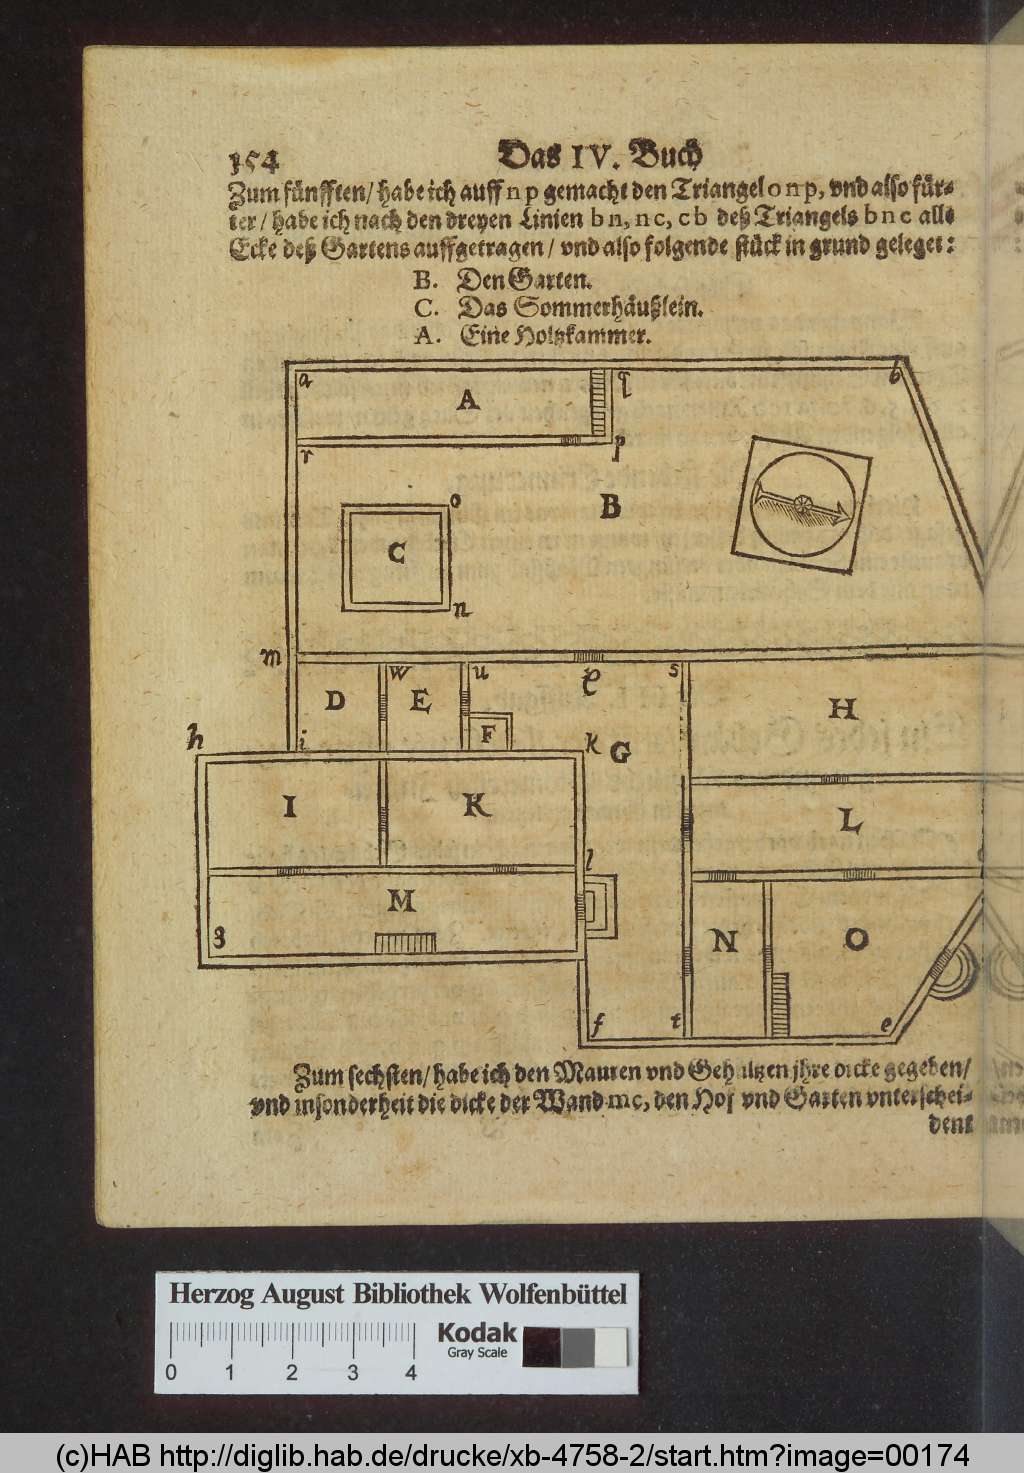 154
Das IV. Buch
Zum fünfften/ habe ich auff n p gemacht den Triangel o n p, vnd also für-
ter/ habe ich nach den dreyen Linien b n, n c, c b deß Triangels b n c alle
Ecke deß Gartens auffgetragen/ vnd also folgende stück in grund geleget:
B. Den Garten.
C. Das Sommerhäußlein.
A. Eine Holtzkammer.
a
A
q
b
r
p
o
B
C
n
m
w
u
s
D
E
F
H
h
i
k
G
I
K
L
l
M
N
O
3
f
t
e
Zum sechsten/ habe ich den Mauren vnd Gehültzen jhre dicke gegeben/
vnd insonderheit die dicke der Wand mc, den Hof vnd Garten vnterschei-
dent
Herzog August Bibliothek Wolfenbüttel
0 1 2 3 4
Kodak
Gray Scale
(c)HAB http://diglib.hab.de/drucke/xb-4758-2/start.htm?image=00174